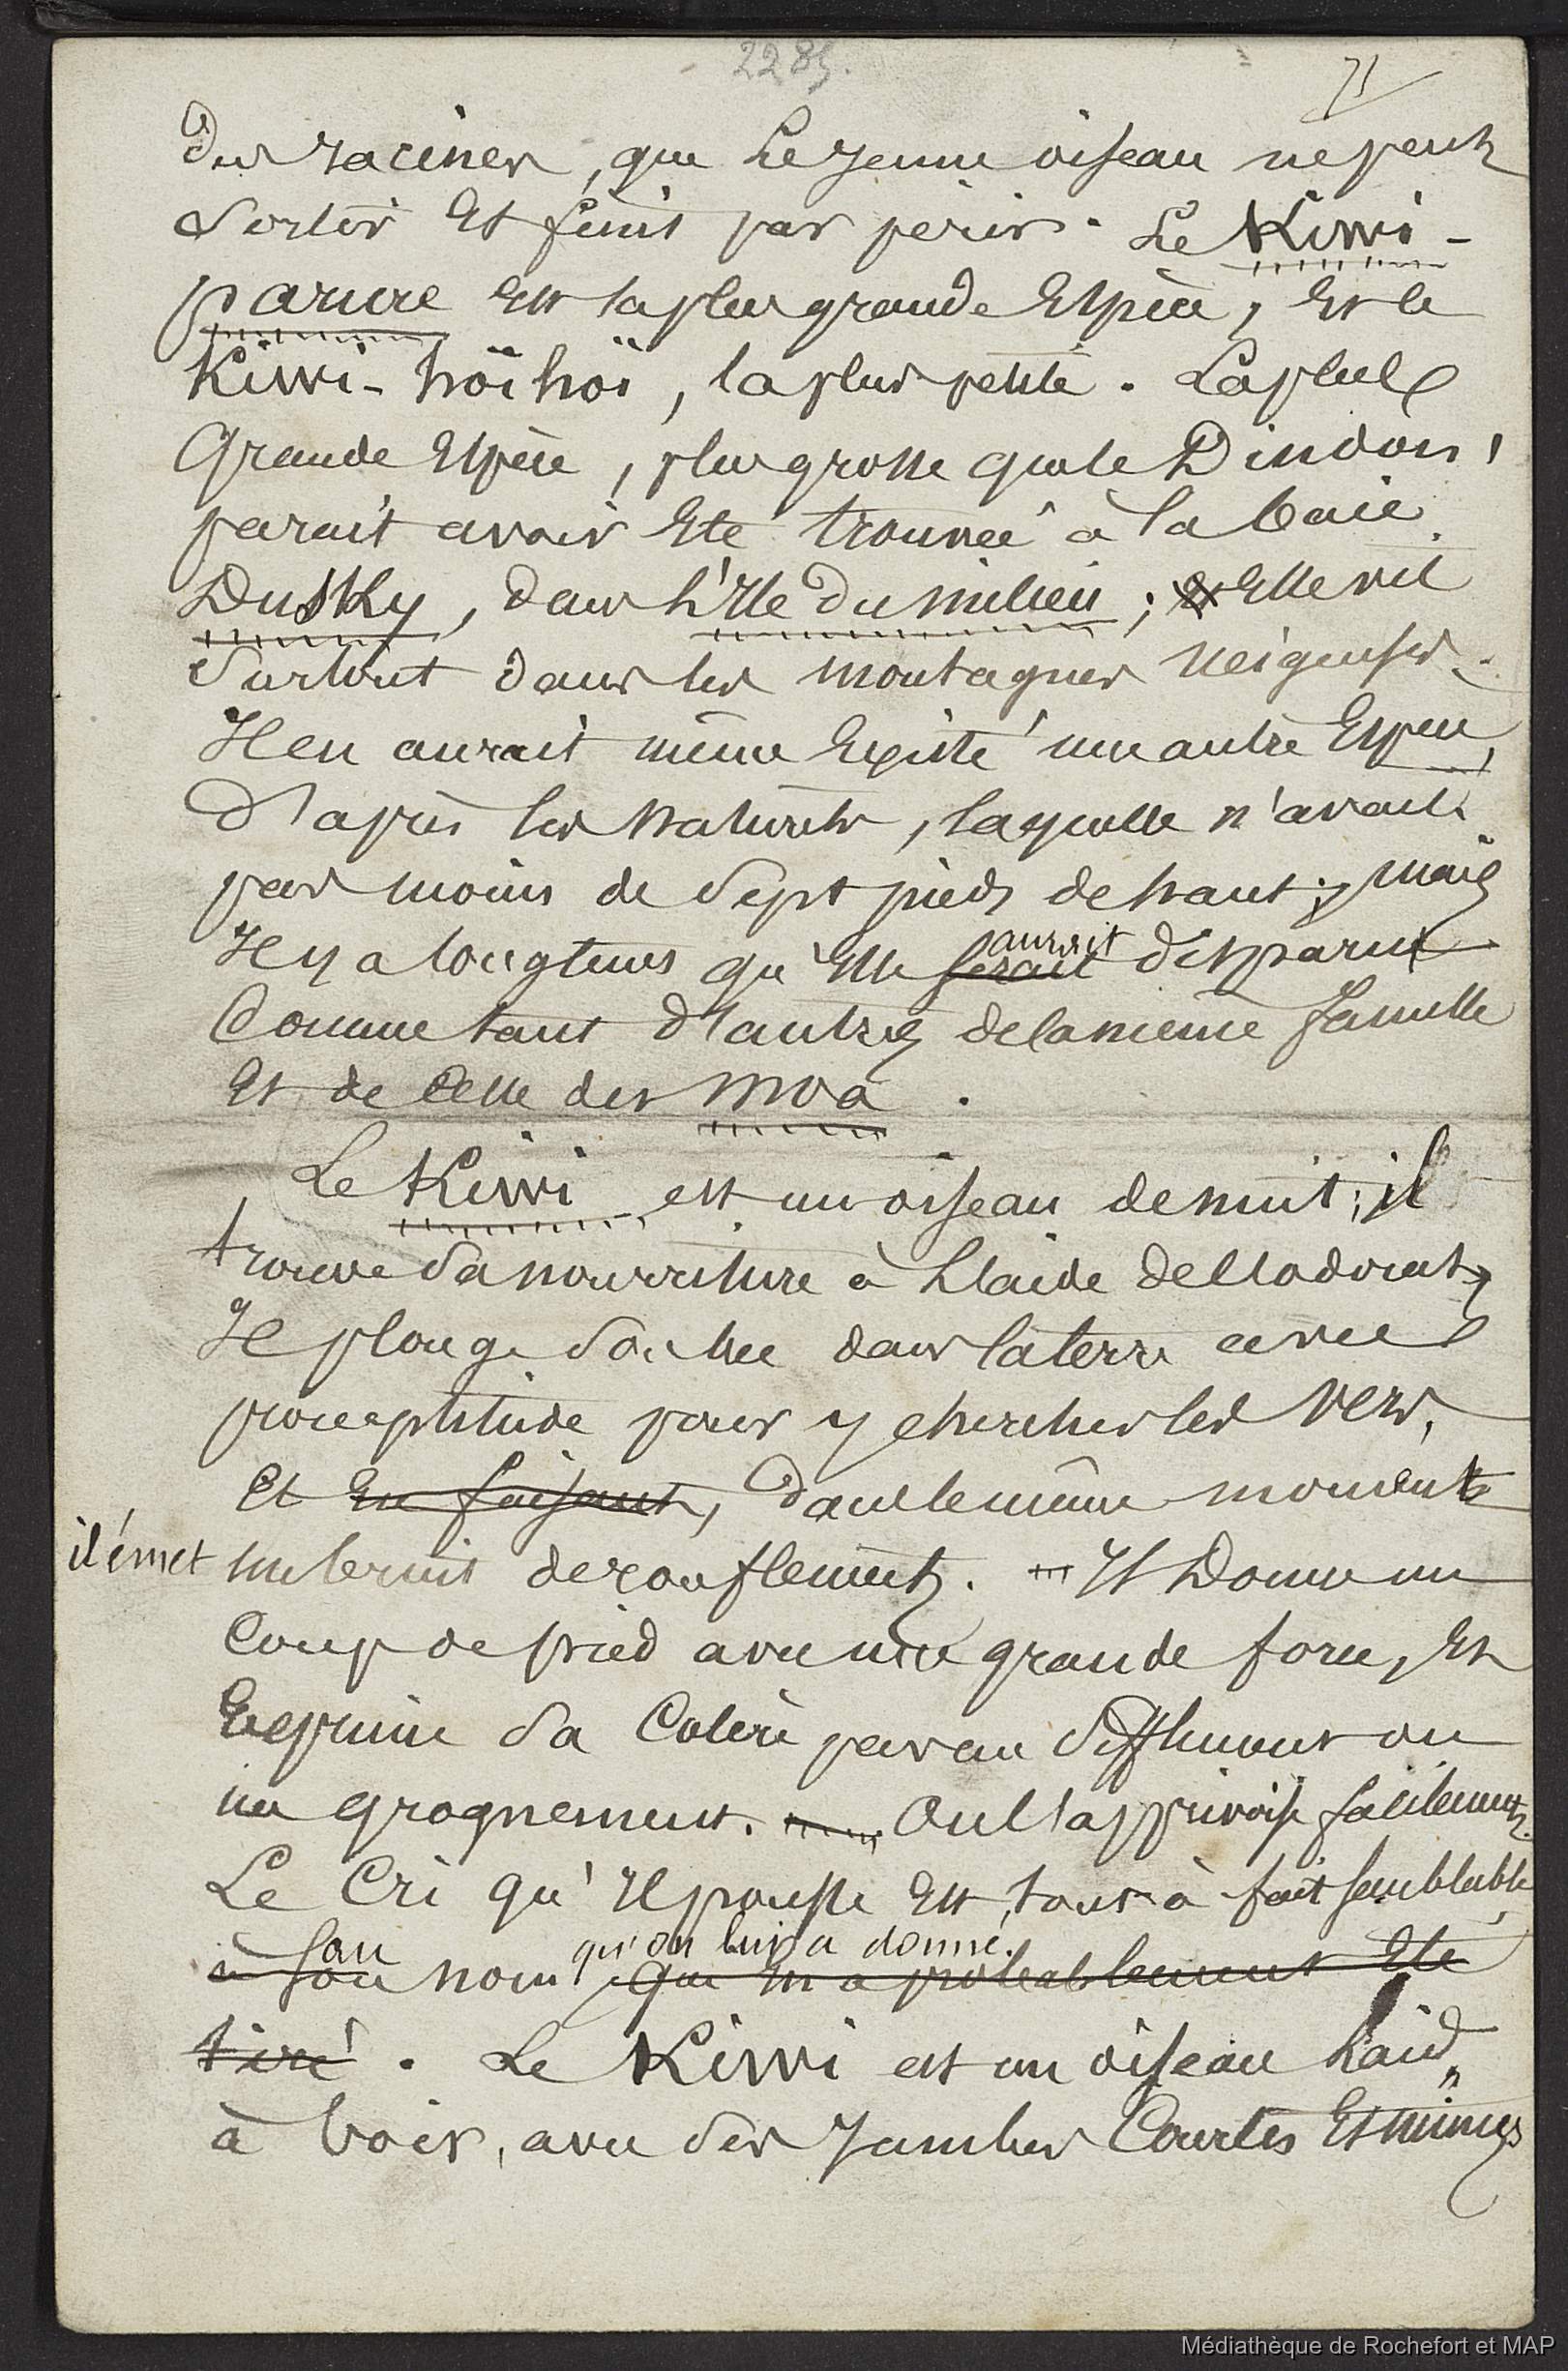 2285.
71
des racines, que le jeune oiseau ne peut
sortir et finit par périr. Le Kiwi-
parure est la plus grande Espèce, et le
Kiwi-hoïhoï, la plus petite. La plus
Grande Espèce, plus grosse que le Dindon,
parait avoir été trouvée à la baie
Dusky, dans l'Ile du milieu ; Elle vit
surtout dans les montagnes neigeuses.
Il en aurait même Existé une autre Espèce,
D'après les naturels, laquelle n'avait
pas moins de sept pieds de haut ; mais
Il y a longtems qu'Elle serait disparu
aurait
Comme tant d'autres de la même famille
Et de Celle des Moa.
Le Kiwi est un oiseau de nuit ; il
trouve sa nourriture à l'aide de l'odorat,
Il plonge son bec dans la terre avec
promptitude pour y chercher les vers,
et en faisant, dans le même moment
il émet un bruit de ronflement. — Il Donne un
Coup de pied avec une grande force, et
Exprime sa Colère par un sifflement ou
un grognement. On l'apprivoise facilement.
Le Cri qu'Il pousse Est tout à fait semblable
à son nom que en a probablement Eté
au
qu'on lui a donné.
tiré. Le Kiwi est un oiseau laid
à voir, avec des Jambes Courtes Et minces
Médiathèque de Rochefort et MAP